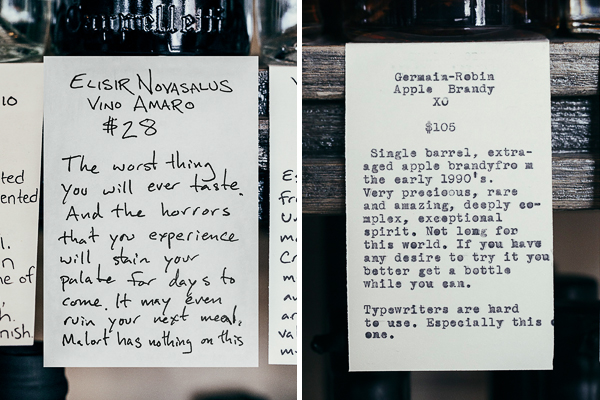 Cappelletti
ELISIR NOVASALUS
VINO AMARO
$28
The worst thing
you will ever taste.
And the horrors
that you experience
will stain your
palate for days to
come. It may even
ruin your next meal.
Malort has nothing on this
Germain-Robin
Apple Brandy
XO
$105
Single barrel, extra-
aged apple brandyfro m
the early 1990's.
Very precious, rare
and amazing, deeply co-
mplex, exceptional
spirit. Not long for
this world. If you have
any desire to try it you
better get a bottle
while you can.
Typewriters are hard
to use. Especially this
one.